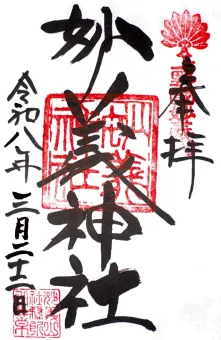 奉拝
妙義神社
令和八年三月二十二日